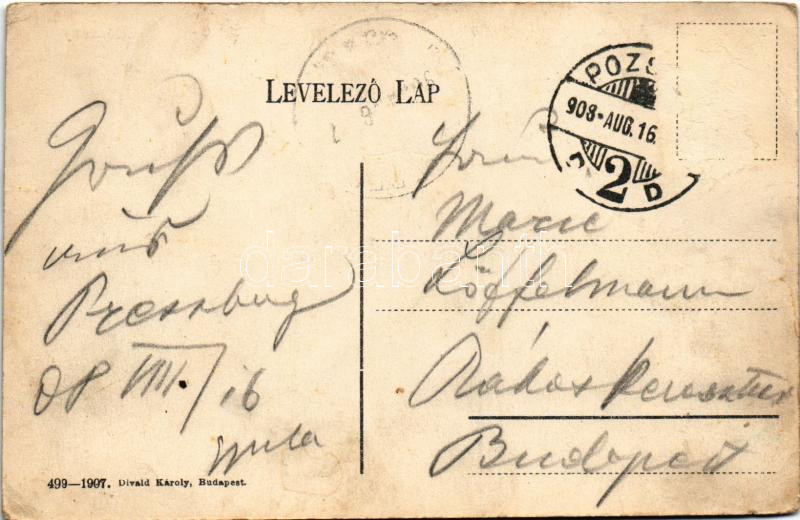 LEVELEZŐ LAP
POZS
908-AUG.16.
2
D
Gruss
aus
Pressburg
08 VIII/16
Gyula
Marie
Löffelmann
Rákoskeresztur
Budapest
499—1907. Divald Károly, Budapest.
darabanth